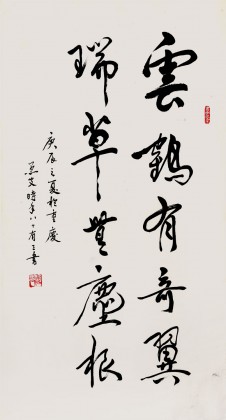 雲鶴有奇翼
瑞草無塵根
庚辰之夏於重慶
時年八十有三書